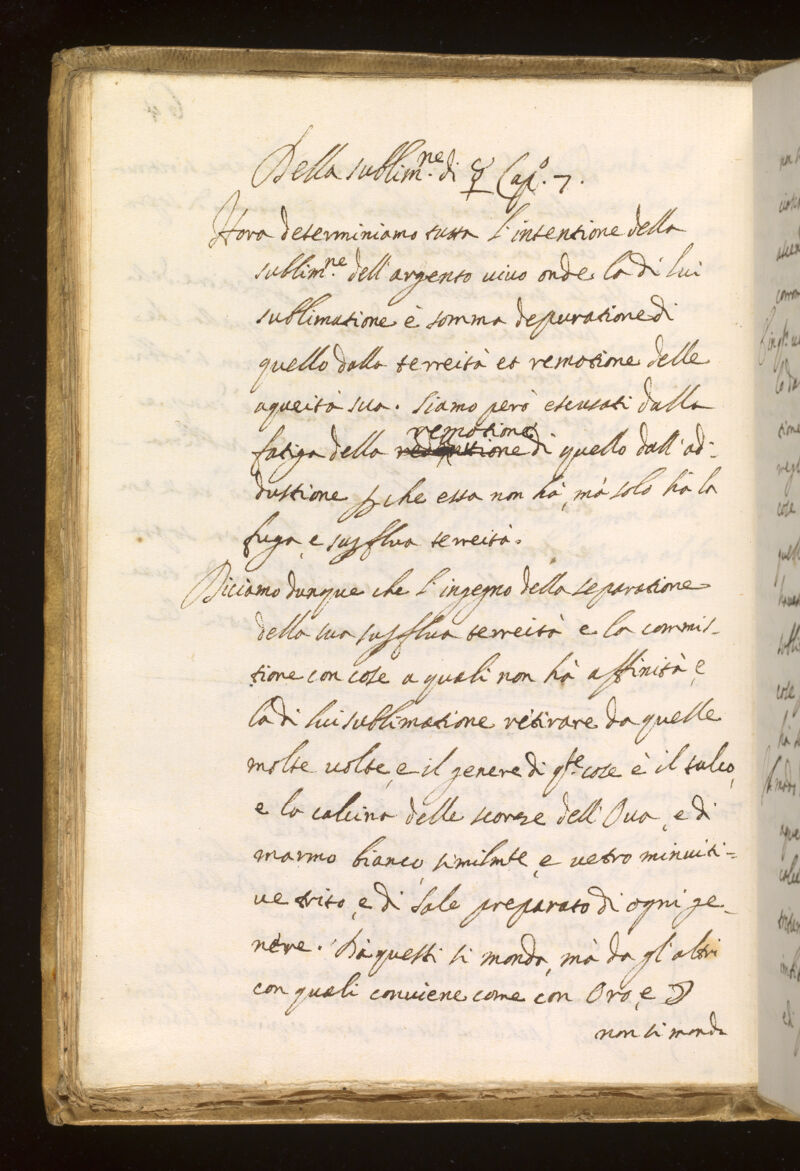 Della sublim.ne di ☿ Cap.o 7.
Hora determiniamo tutta l'intentione della
sublim.ne dell'argento vivo onde la di lui
sublimatione è somma depuratione di
quello dalla terreità et remotione delle
aqueità sua. Siamo però escusati dalla
remotione
fatiga della di quello dall'ad-
dustione perche essa non hà, mà solo hà la
fuga, e supflua terreità.
Diciamo dunque che l'ingegno della separatione
della sua supflua terreità e la commis-
tione con cose a quali non hà affinità, e
la di lui sublimatione retirare da quelle
molte volte, e il genere di q.ste cose è il talco,
e la calcina delle scorze dell'Ova, e di
marmo bianco, similmte, e vetro minuti-
ve trito, e di Sale preparato di ogni ge-
nere. Da questi si monda, mà da gl'altri
con quali conviene come con Oro, e ☽
non si monda